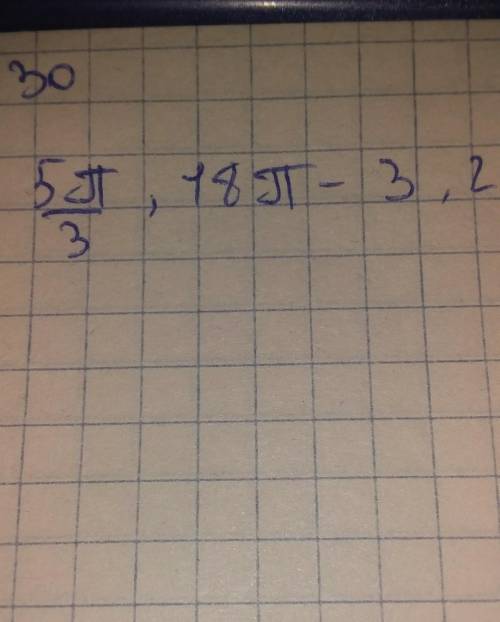 30
5π/3, 18π - 3, 2